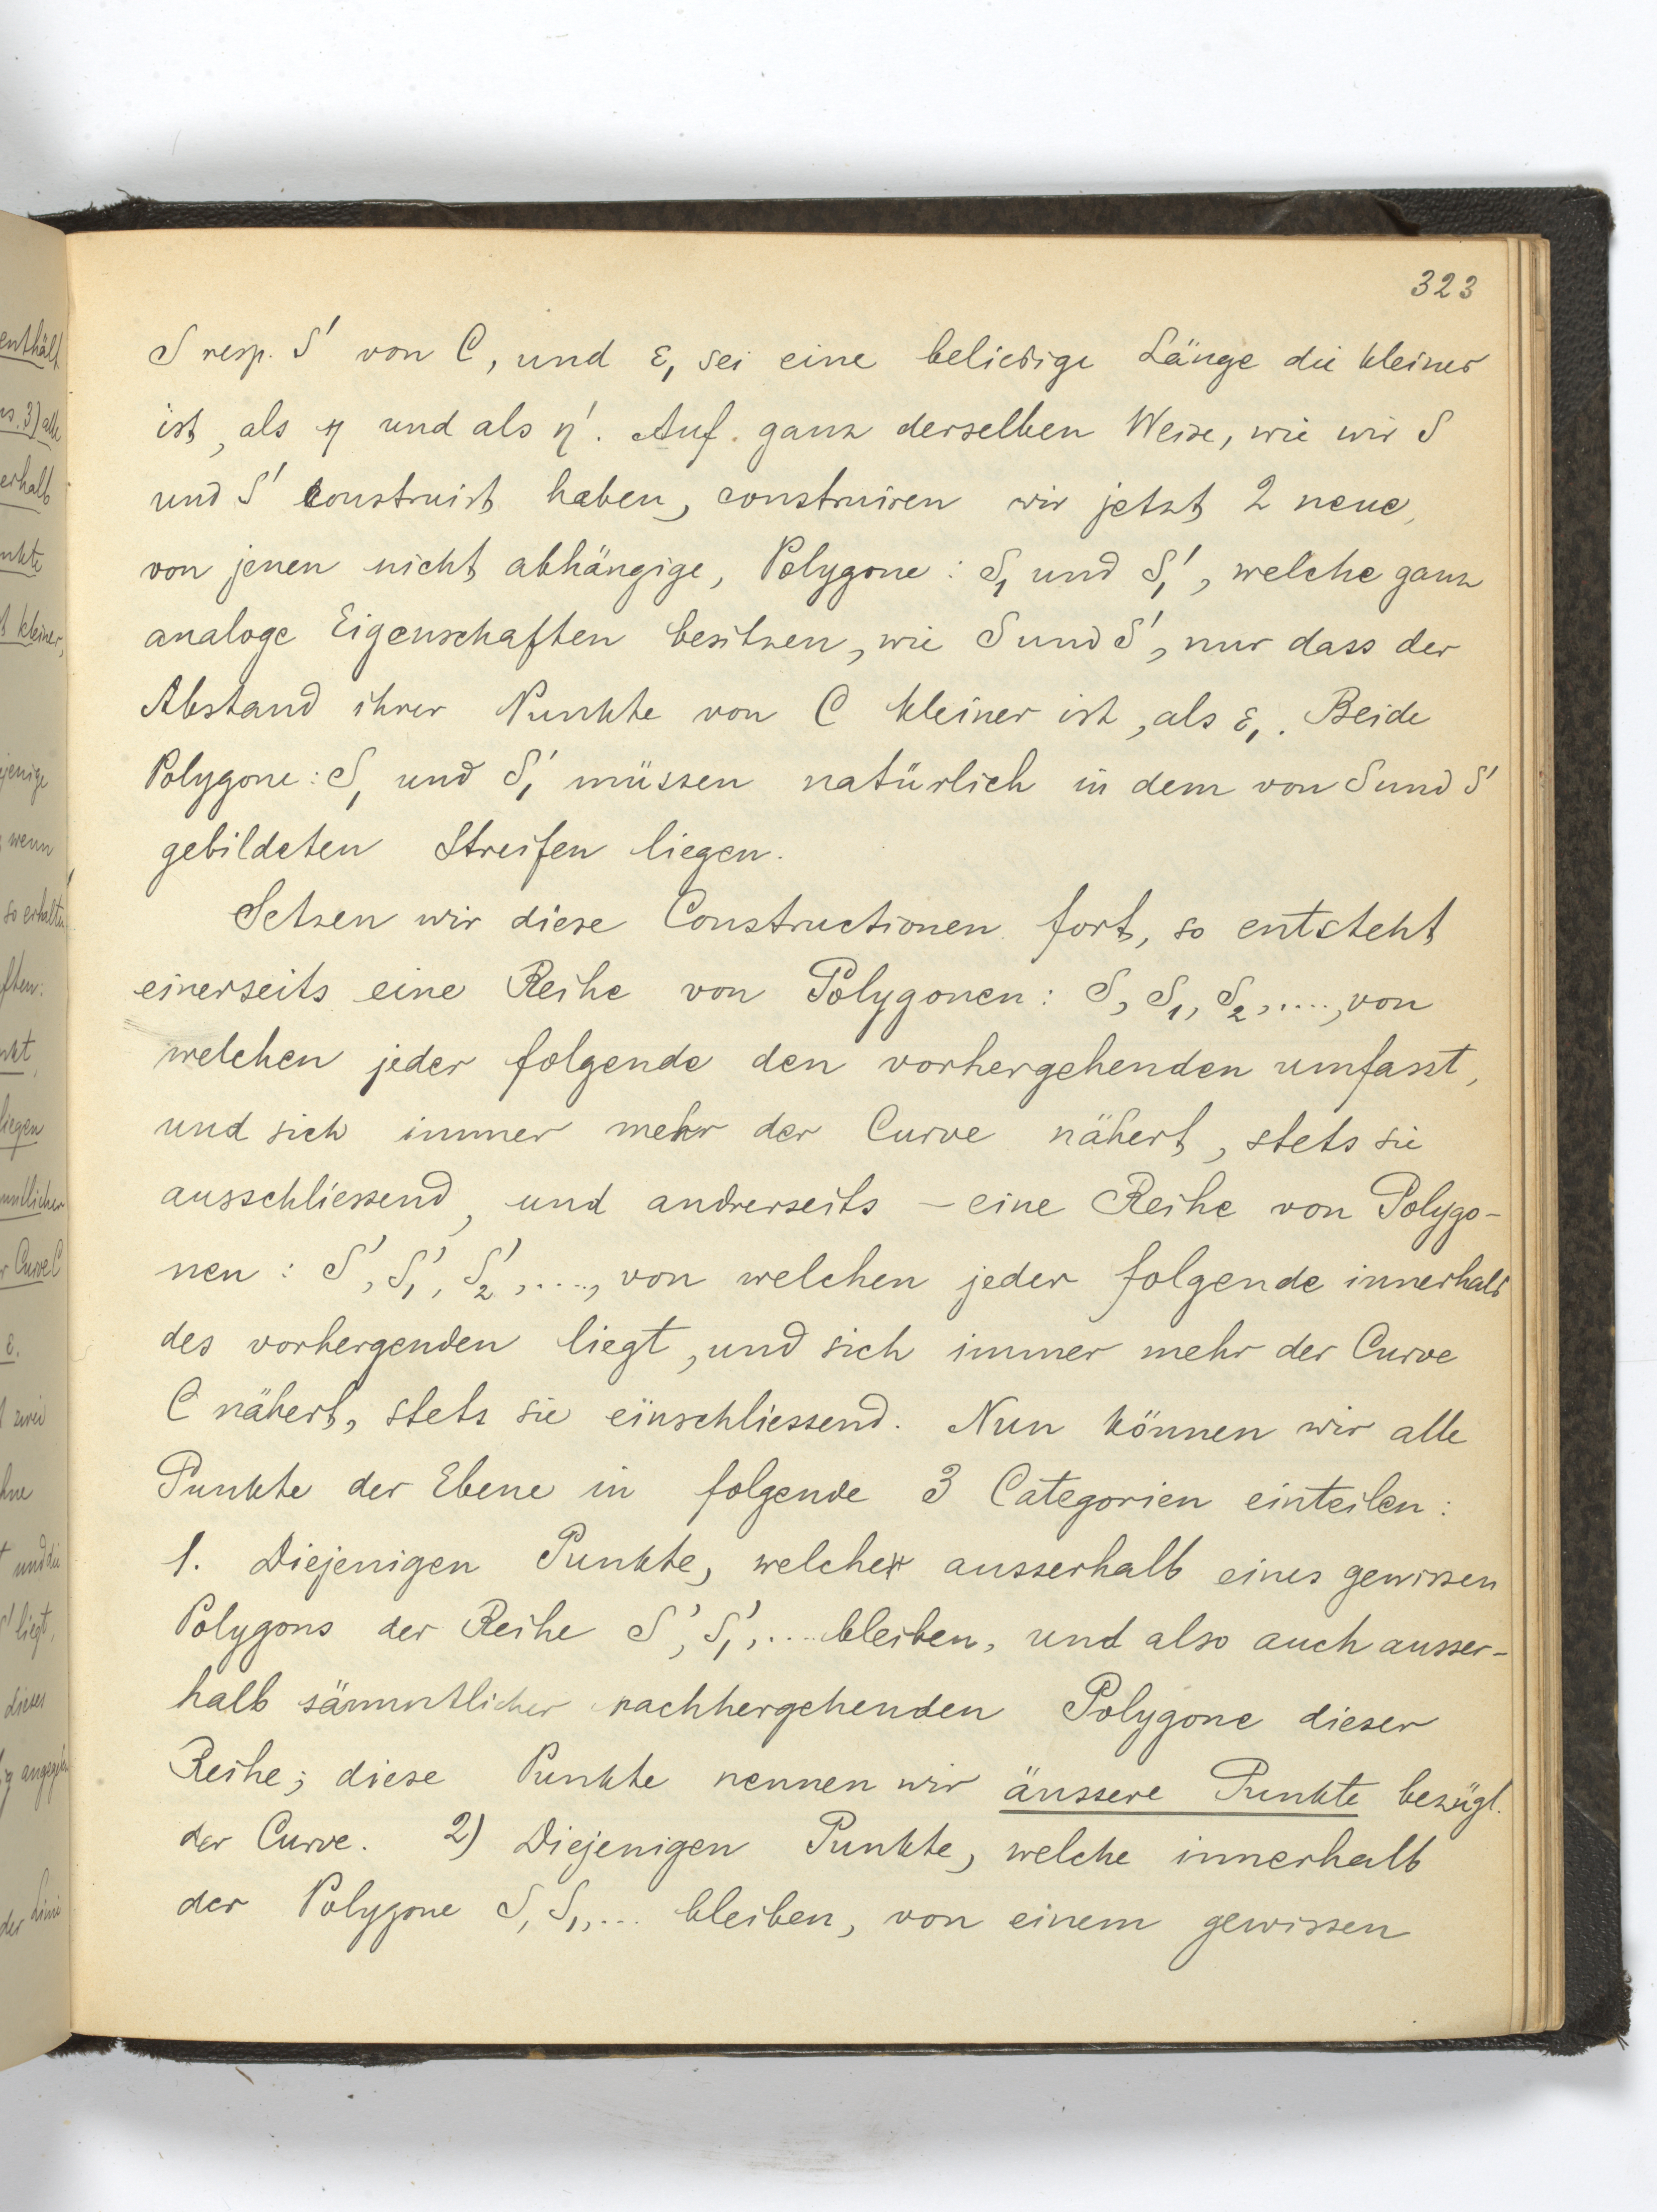 323
S resp. S' von C, und ε₁ sei eine beliebige Länge die kleiner
ist, als η und als η'. Auf ganz derselben Weise, wie wir S
und S' construirt haben, construiren wir jetzt 2 neue,
von jenen nicht abhängige, Polygone: S₁ und S₁', welche ganz
analoge Eigenschaften besitzen, wie S und S', nur dass der
Abstand ihrer Punkte von C kleiner ist, als ε₁. Beide
Polygone: S₁ und S₁' müssen natürlich in dem von S und S'
gebildeten Streifen liegen.
Setzen wir diese Constructionen fort, so entsteht
einerseits eine Reihe von Polygonen: S, S₁, S₂, ...., von
welchen jeder folgende den vorhergehenden umfasst,
und sich immer mehr der Curve nähert, stets sie
ausschliessend, und andrerseits – eine Reihe von Polygo-
nen: S', S₁', S₂', ...., von welchen jeder folgende innerhalb
des vorhergenden liegt, und sich immer mehr der Curve
C nähert, stets sie einschliessend. Nun können wir alle
Punkte der Ebene in folgende 3 Categorien einteilen:
1. Diejenigen Punkte, welche ausserhalb eines gewissen
Polygons der Reihe S', S₁', .... bleiben, und also auch ausser-
halb sämmtlicher nachhergehenden Polygone dieser
Reihe; diese Punkte nennen wir äussere Punkte bezügl.
der Curve. 2) Diejenigen Punkte, welche innerhalb
der Polygone S, S₁, ... bleiben, von einem gewissen
enthält
3) alle
erhalb
nkte
kleiner,
jenige
wenn
so erhalten
ften:
nkt
liegen
mtlicher
Curve C
ε.
zwei
hne
und die
S' liegt,
dieses
der Linie